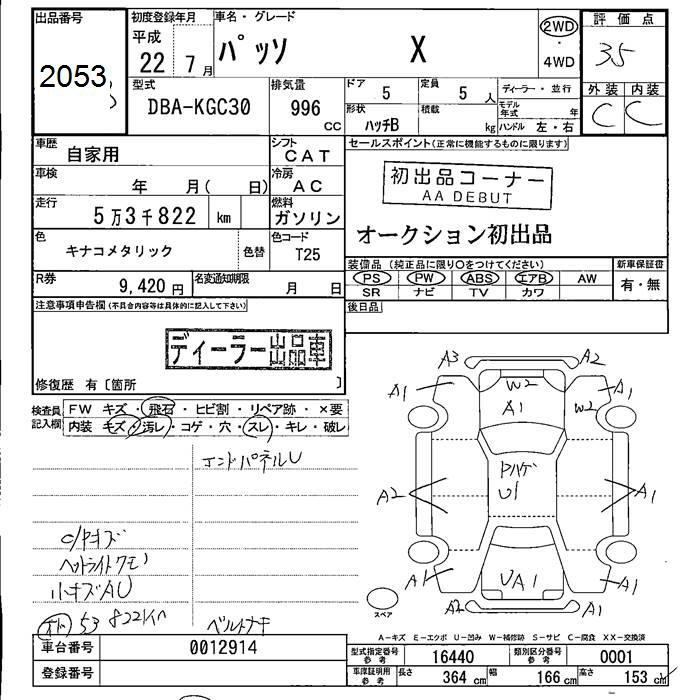 出品番号
2053
初度登録年月
平成 22 7月
車名・グレード
パッソ X
2WD
・
4WD
評価点
3.5
外装 内装
C C
型式
DBA-KGC30
排気量
996 CC
ドア
5
定員
5 人
形状
ハッチB
積載
kg
ディーラー・並行
モデル年式 年
ハンドル 左・右
車歴
自家用
シフト
CAT
車検
年 月( 日)
冷房
AC
走行
5万3千822 km
燃料
ガソリン
色
キナコメタリック
色替
色コード
T25
R券
9,420円
名変通知期限
月 日
セールスポイント(正常に機能するものに限ります)
初出品コーナー
AA DEBUT
オークション初出品
装備品(純正品に限り○をつけてください)
PS PW ABS エアB AW
SR ナビ TV カワ
新車保証書
有・無
後日品
注意事項申告欄(不具合内容等は具体的に記入して下さい)
ディーラー出品車
修復歴 有〔箇所 〕
検査員記入欄
FW キズ・飛石・ヒビ割・リペア跡・×要
内装 キズ・汚レ・コゲ・穴・スレ・キレ・破レ
エンドパネルU
ヘッドライトクモリ
小キズAU
53822km
A3 A2
A1 W2 A1
A1 W2
ヤハゲ
U1
A2 A1
A1 UA1 A1
A2 A1
スペア
A-キズ E-エクボ U-凹み W-補修跡 S-サビ C-腐食 XX-交換済
車台番号
0012914
登録番号
型式指定番号 参考
16440
類別区分番号 参考
0001
車庫証明用 参考
長さ 364 cm 幅 166 cm 高さ 153 cm